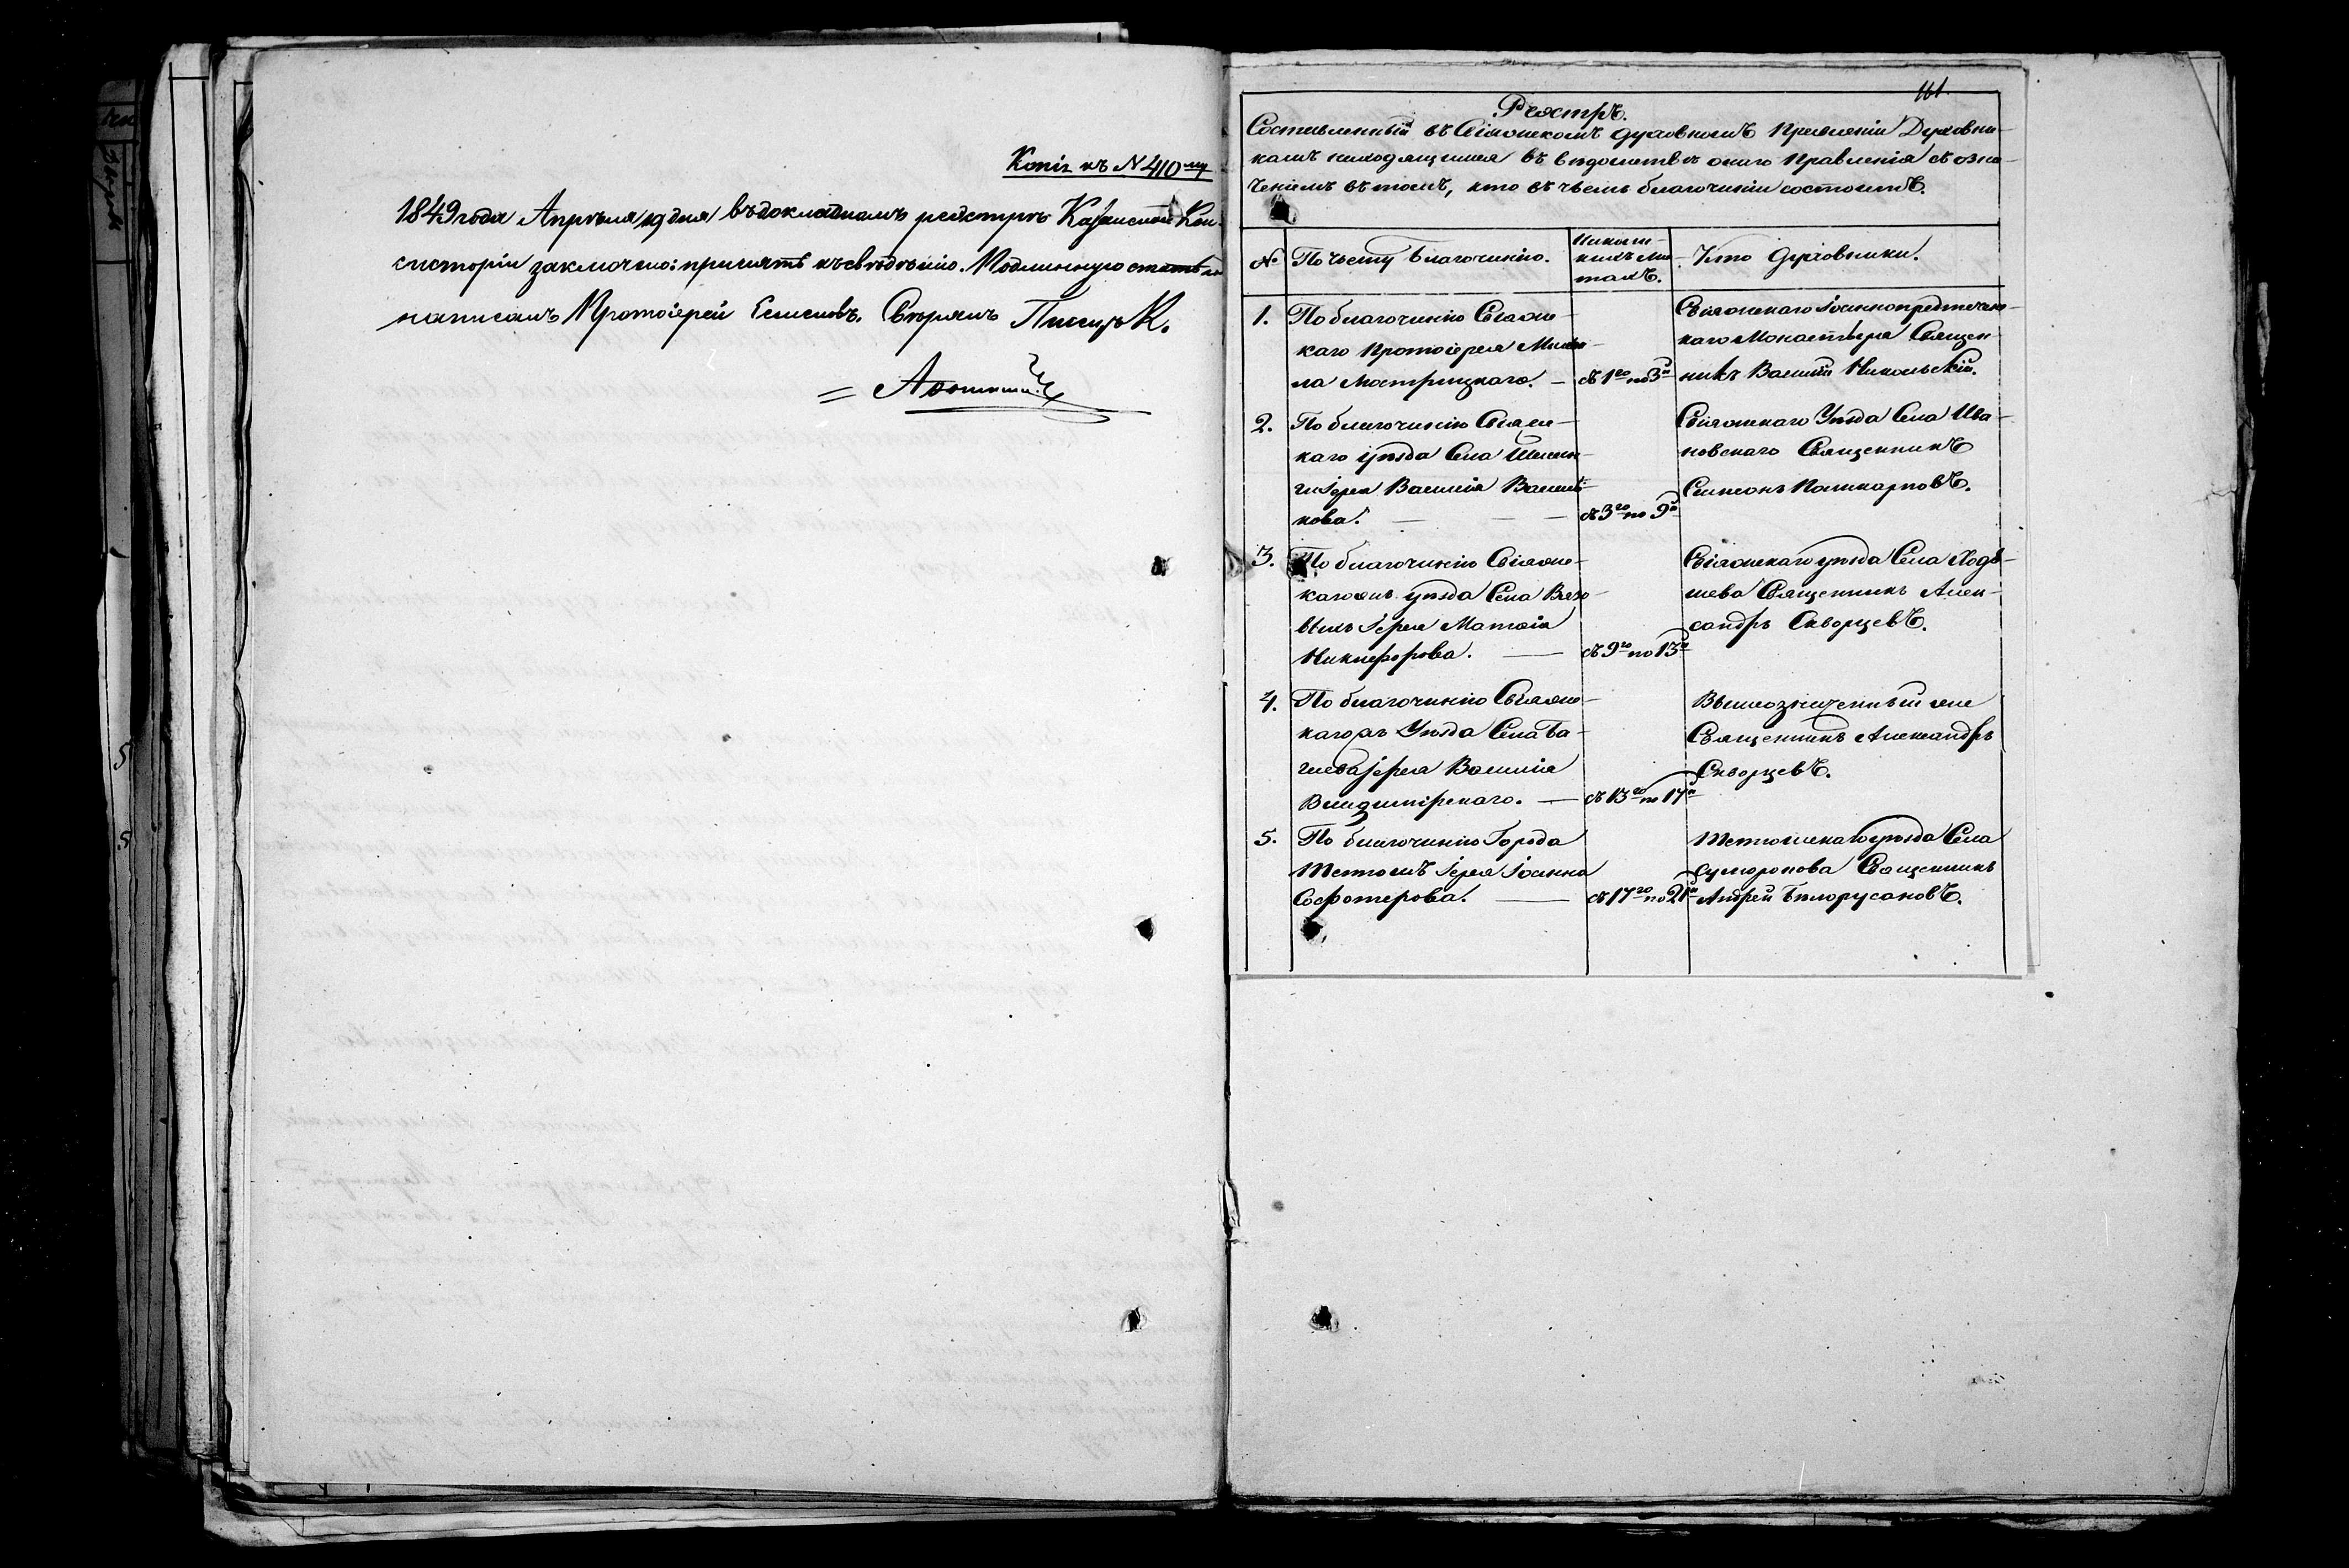 Копія къ N 410му
1849 года Апрѣля 19 дня въ докладномъ реэстрѣ Казанской Кон-
систоріи заключено: принять къ свѣдѣнію. Подлинную статью
написалъ Протоіерей Свѣрялъ Писецъ К.
161.
Реэстръ.
Составленный въ Свіяжскомъ духовномъ Правленіи Духовни-
камъ находящимся въ вѣдомствѣ онаго Правленія съ озна-
ченіемъ въ томъ, кто въ чьемъ благочиніи состоитъ.
№
По чьему благочинію.
На коли-
кихъ лис-
тахъ.
Кто духовники.
1.
По благочинію Свіяжс-
каго Протоіерея Михаи-
ла
съ 1го по 3й
Свіяжскаго Іоаннопредтечен-
скаго Монастыря Священ-
никъ Василій Никольскій.
2.
По благочинію Свіяжс-
каго уѣзда Села
Іерея Василія Василь-
кова.
съ 3го по 9й
Свіяжскаго Уѣзда Села Ива-
новскаго Священникъ
Симеонъ Поликарповъ.
3.
По благочинію Свіяжс-
кагожъ уѣзда Села Вязо-
выхъ Іерея Матвія
Никифорова.
съ 9го по 13й
Свіяжскаго уѣзда Села Ходя-
шева Священникъ Алек-
сандръ Скворцевъ.
4.
По благочинію Свіяжс-
кагожъ Уѣзда Села Ба-
гаева Іерея Василія
Владимірскаго.
съ 13го по 17й
Вышеозначенный же
Священникъ Александръ
Скворцевъ.
5.
По благочинію Города
Тетюшъ Іерея Іоанна
Софотерова.
съ 17го по 21й
Тетюшскаго уѣзда Села
Сумарокова Священникъ
Андрей Бѣлорусановъ.